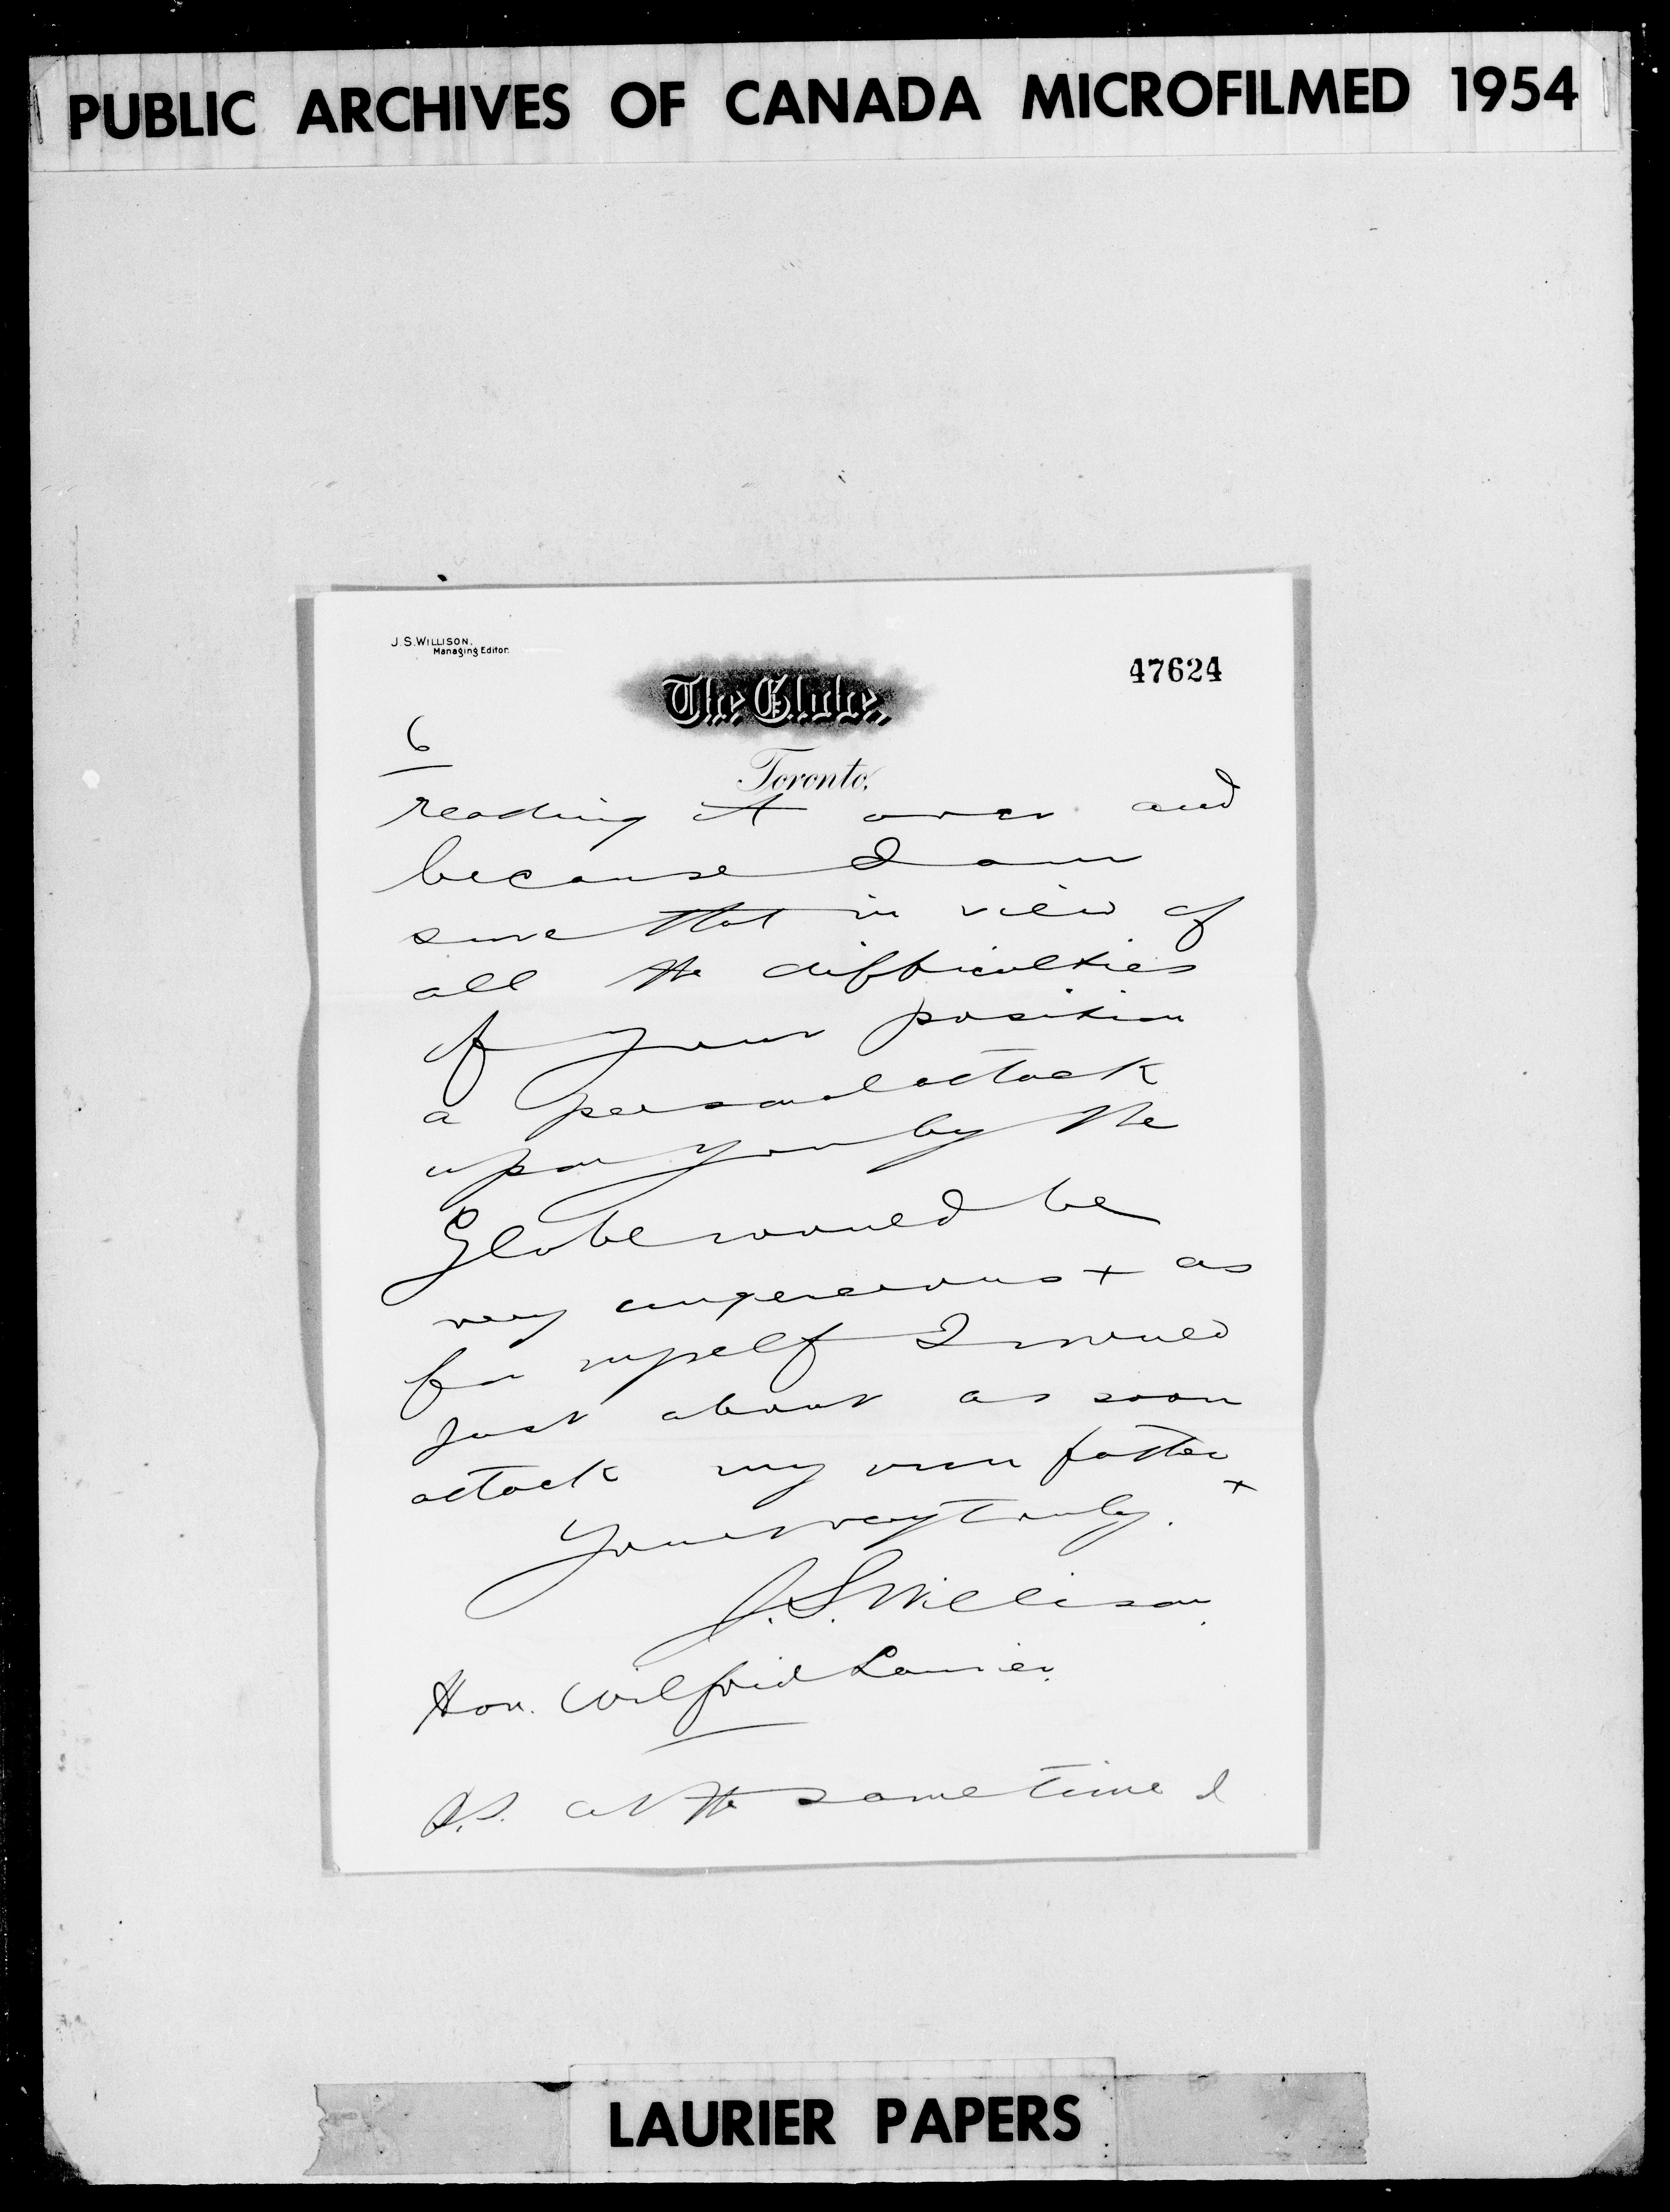 PUBLIC ARCHIVES OF CANADA MICROFILMED 1954
J.S. WILLISON,
Managing Editor.
47624
The Globe,
Toronto,
6
reading it over and
because I am
sure that in view of
all the difficulties
of your position
a personal attack
upon you by the
Globe would be
very ungenerous + as
for myself I would
just about as soon
attack my own father +
Yours very truly.
J. S. Willison.
Hon. Wilfrid Laurier.
P.S. At the same time I
LAURIER PAPERS